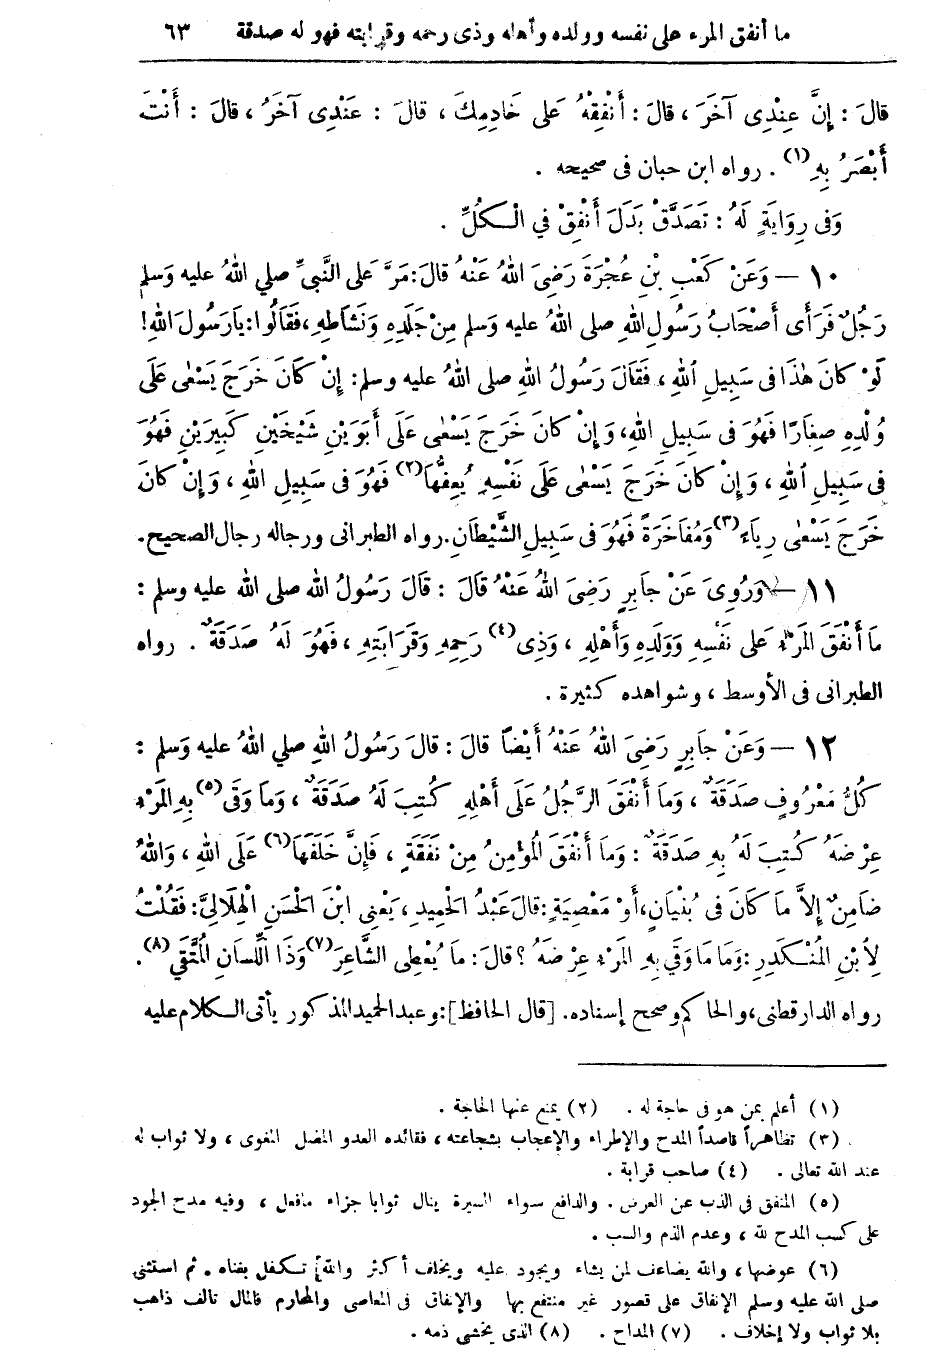 ما أنفق المرء على نفسه وولده وأهله وذى رحمه وقرابته فهو له صدقة ٦٣
قَالَ : إِنَّ عِنْدِى آخَرَ ، قَالَ : أَنْفِقْهُ عَلَى خَادِمِكَ ، قَالَ : عِنْدِى آخَرُ ، قَالَ : أَنْتَ
أَبْصَرُ بِهِ(١) . رواه ابن حبان فى صحيحه .
وَفى رِوَايَةٍ لَهُ : تَصَدَّقْ بَدَلَ أَنْفِقْ فِي الْـكُلِّ .
١٠ – وَعَنْ كَعْبِ بْنِ عُجْرَةَ رَضِىَ اللهُ عَنْهُ قَالَ : مَرَّ عَلَى النَّبِىِّ صلي اللهُ عليه وَسلم
رَجُلٌ فَرَأَى أَصْحَابُ رَسُولِ اللهِ صلى اللهُ عليه وَسلم مِنْ جَلَدِهِ وَنَشَاطِهِ ، فَقَالُوا : يَارَسُولَ اللهِ !
لَوْ كَانَ هٰذَا فى سَبِيلِ اللهِ ، فَقَالَ رَسُولُ اللهِ صلى اللهُ عليه وسلم : إِنْ كَانَ خَرَجَ يَسْعٰى عَلَى
وُلْدِهِ صِغَارًا فَهُوَ فى سَبِيلِ اللهِ ، وَإِنْ كَانَ خَرَجَ يَسْعٰى عَلَى أَبَوَيْنِ شَيْخَيْنِ كَبِيرَيْنِ فَهُوَ
فى سَبِيلِ اللهِ ، وَإِنْ كَانَ خَرَجَ يَسْعٰى عَلَى نَفْسِهِ يُعِفُّهَا(٢) فَهُوَ فى سَبِيلِ اللهِ ، وَإِنْ كَانَ
خَرَجَ يَسْعٰى رِيَاءً(٣) وَمُفَاخَرَةً فَهُوَ فى سَبِيلِ الشَّيْطَانِ . رواه الطبرانى ورجاله رجال الصحيح .
١١ – وَرُوِىَ عَنْ جَابِرٍ رَضِىَ اللهُ عَنْهُ قَالَ : قَالَ رَسُولُ الله صلى الله عليه وسلم :
مَا أَنْفَقَ المَرْءُ عَلى نَفْسِهِ وَوَلَدِهِ وَأَهْلِهِ ، وَذِى(٤) رَحِمِهِ وَقَرَابَتِهِ ، فَهُوَ لَهُ صَدَقَةٌ . رواه
الطبرانى فى الأوسط ، وشواهده كثيرة .
١٢ – وَعَنْ جَابِرٍ رَضِىَ اللهُ عَنْهُ أَيْضاً قَالَ : قَالَ رَسُولُ اللهِ صلي اللهُ عليه وَسلم :
كُلُّ مَعْرُوفٍ صَدَقَةٌ ، وَمَا أَنْفَقَ الرَّجُلُ عَلَى أَهْلِهِ كُتِبَ لَهُ صَدَقَةٌ ، وَمَا وَقَى(٥) بِهِ المَرْءُ
عِرْضَهُ كُتِبَ لَهُ بِهِ صَدَقَةٌ : وَمَا أَنْفَقَ المُؤْمِنُ مِنْ نَفَقَةٍ ، فَإِنَّ خَلَفَهَا(٦) عَلَى اللهِ ، وَاللهُ
ضَامِنٌ إِلاَّ مَا كَانَ فى بُنْيَانٍ ، أَوْ مَعْصِيَةٍ : قَالَ عَبْدُ الحَمِيدِ ، يَعْنِى ابْنَ الحَسَنِ الْهِلَالِىَّ : فَقُلْتُ
لِاُبْنِ المُنْـكَدِرِ : وَمَا مَا وَقَي بِهِ المَرْءُ عِرْضَهُ ؟ قَالَ : مَا يُعْطِى الشَّاعِرَ(٧) وَذَا اللِّسَانِ المُتَّقَي(٨) .
رواه الدارقطنى ، والحاكم وصحح إسناده . [قال الحافظ] : وعبد الحميد المذكور يأتى الـكلام عليه
(١) أعلم بمن هو فى حاجة له . (٢) يمنع عنها الحاجة .
(٣) تظاهراً قاصداً المدح والإطراء والإعجاب بشجاعته ، فقائده العدو المضل المغوى ، ولا ثواب له
عند الله تعالى . (٤) صاحب قرابة .
(٥) المنفق فى الذب عن العرض . والدافع سواء السيرة ينال ثوابا جزاء مافعل ، وفيه مدح الجود
على كسب المدح لله ، وعدم الذم والسب .
(٦) عوضها ، والله يضاعف لمن يشاء ويجود عليه ويخلف أكثر والله تـكفل بغناه . ثم استثنى
صلى الله عليه وسلم الإنفاق على قصور غير منتفع بها والإنفاق فى المعاصى والمحارم فالمال تالف ذاهب
بلا ثواب ولا إخلاف . (٧) المداح . (٨) الذى يخشى ذمه .